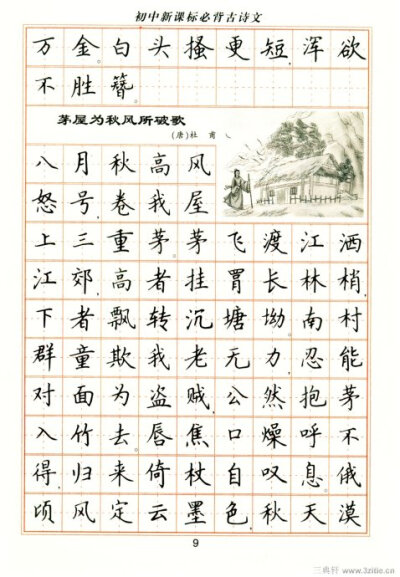 初中新课标必背古诗文
万金。白头搔更短，浑欲
不胜簪。
茅屋为秋风所破歌
(唐)杜 甫
八月秋高风
怒号，卷我屋
上三重茅。茅飞渡江洒
江郊，高者挂罥长林梢，
下者飘转沉塘坳。南村
群童欺我老无力，忍能
对面为盗贼。公然抱茅
入竹去，唇焦口燥呼不
得，归来倚杖自叹息。俄
顷风定云墨色，秋天漠
9
www.3zitie.cn